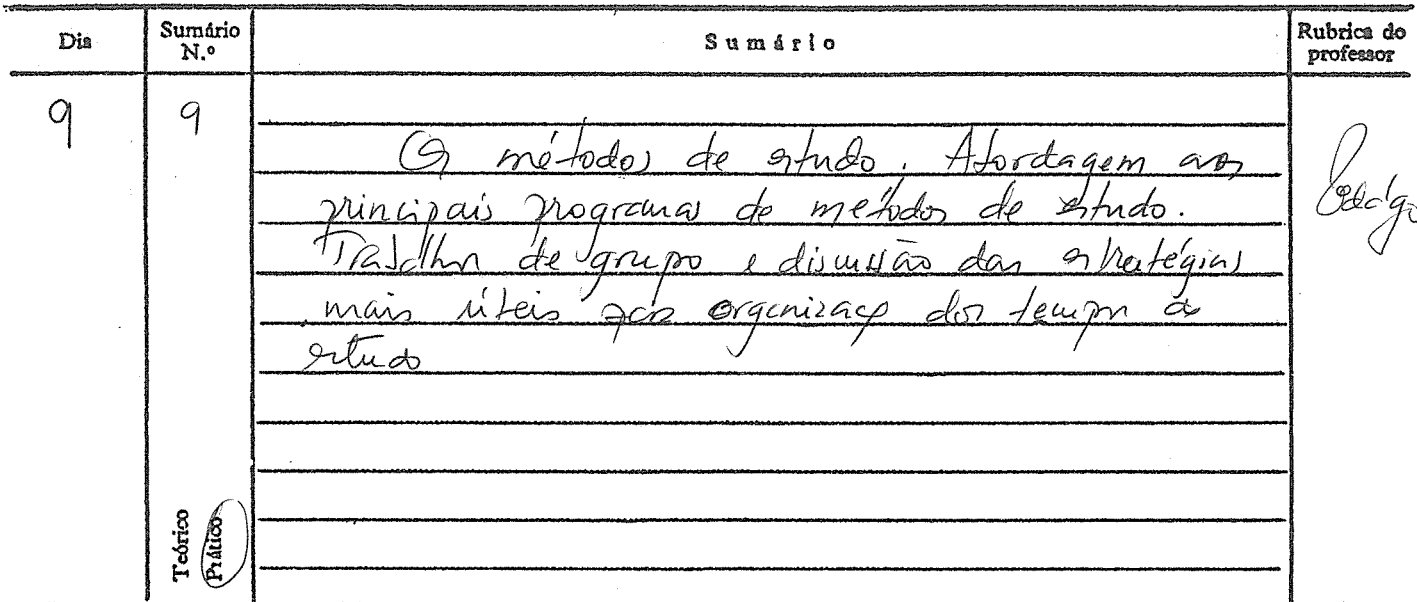 Dia Sumário N.º Sumário Rubrica do professor
9 9
Os métodos de estudo. Abordagem aos
principais programas de métodos de estudo.
Trabalho de grupo e discussão das estratégias
mais úteis para organização dos tempos de
estudo
Teórico
Prático